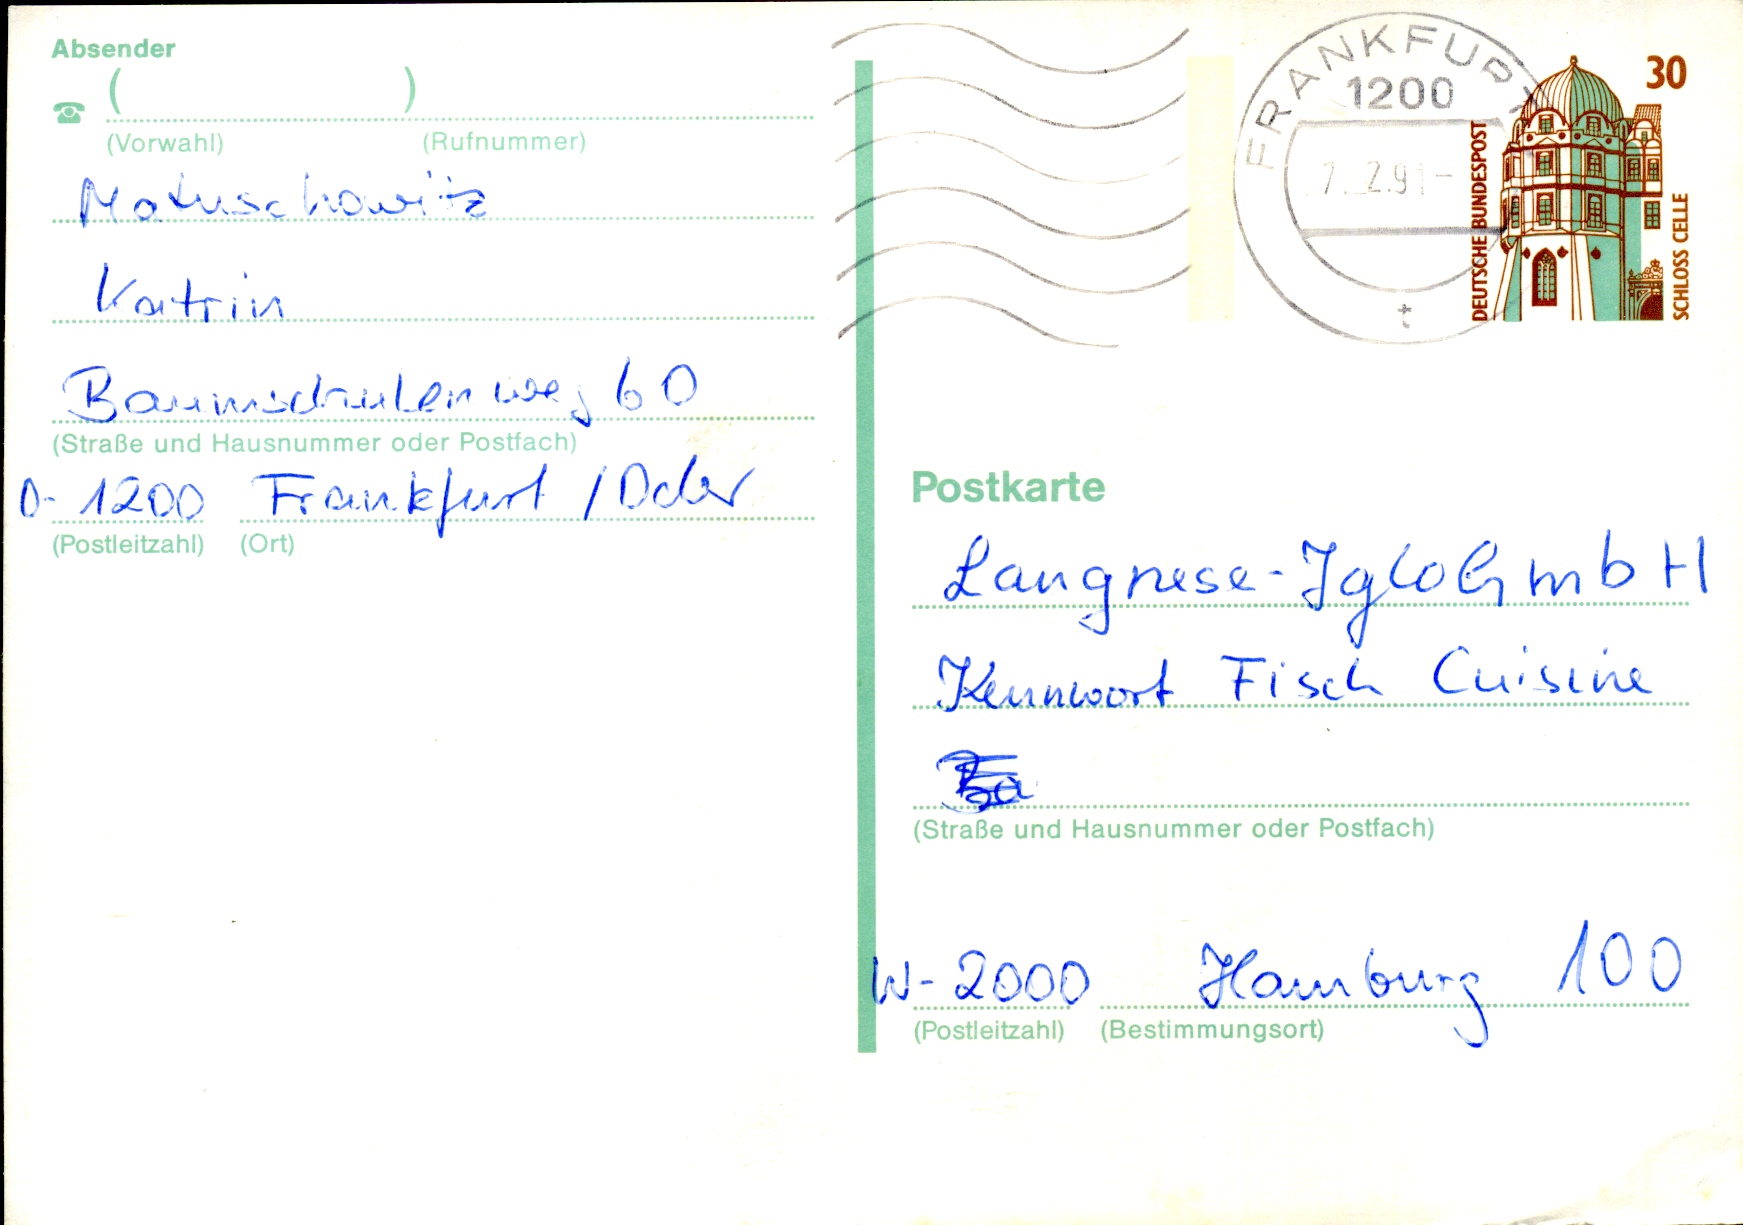 Absender
( )
(Vorwahl) (Rufnummer)
Matuschowitz
Katrin
Baumschulenweg 60
(Straße und Hausnummer oder Postfach)
O-1200 Frankfurt / Oder
(Postleitzahl) (Ort)
FRANKFURT
1200
7.2.91-
t
30
DEUTSCHE BUNDESPOST
SCHLOSS CELLE
Postkarte
Langnese-Iglo GmbH
Kennwort Fisch Cuisine
(Straße und Hausnummer oder Postfach)
W-2000 Hamburg 100
(Postleitzahl) (Bestimmungsort)